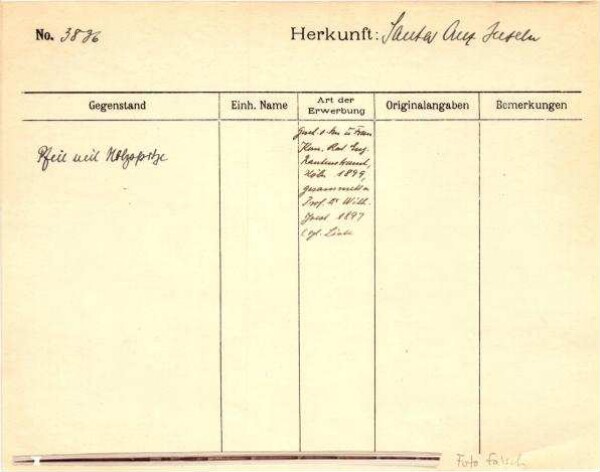 No. 3876
Herkunft: Santa Cruz Inseln
Gegenstand
Einh. Name
Art der Erwerbung
Originalangaben
Bemerkungen
Pfeil mit Holzspitze
Gesch. v. Frau
Kom. Rat Eug.
Rautenstrauch,
Köln 1899,
gesammelt v.
Prof. Dr Wilh.
Joest 1897
Foto falsch